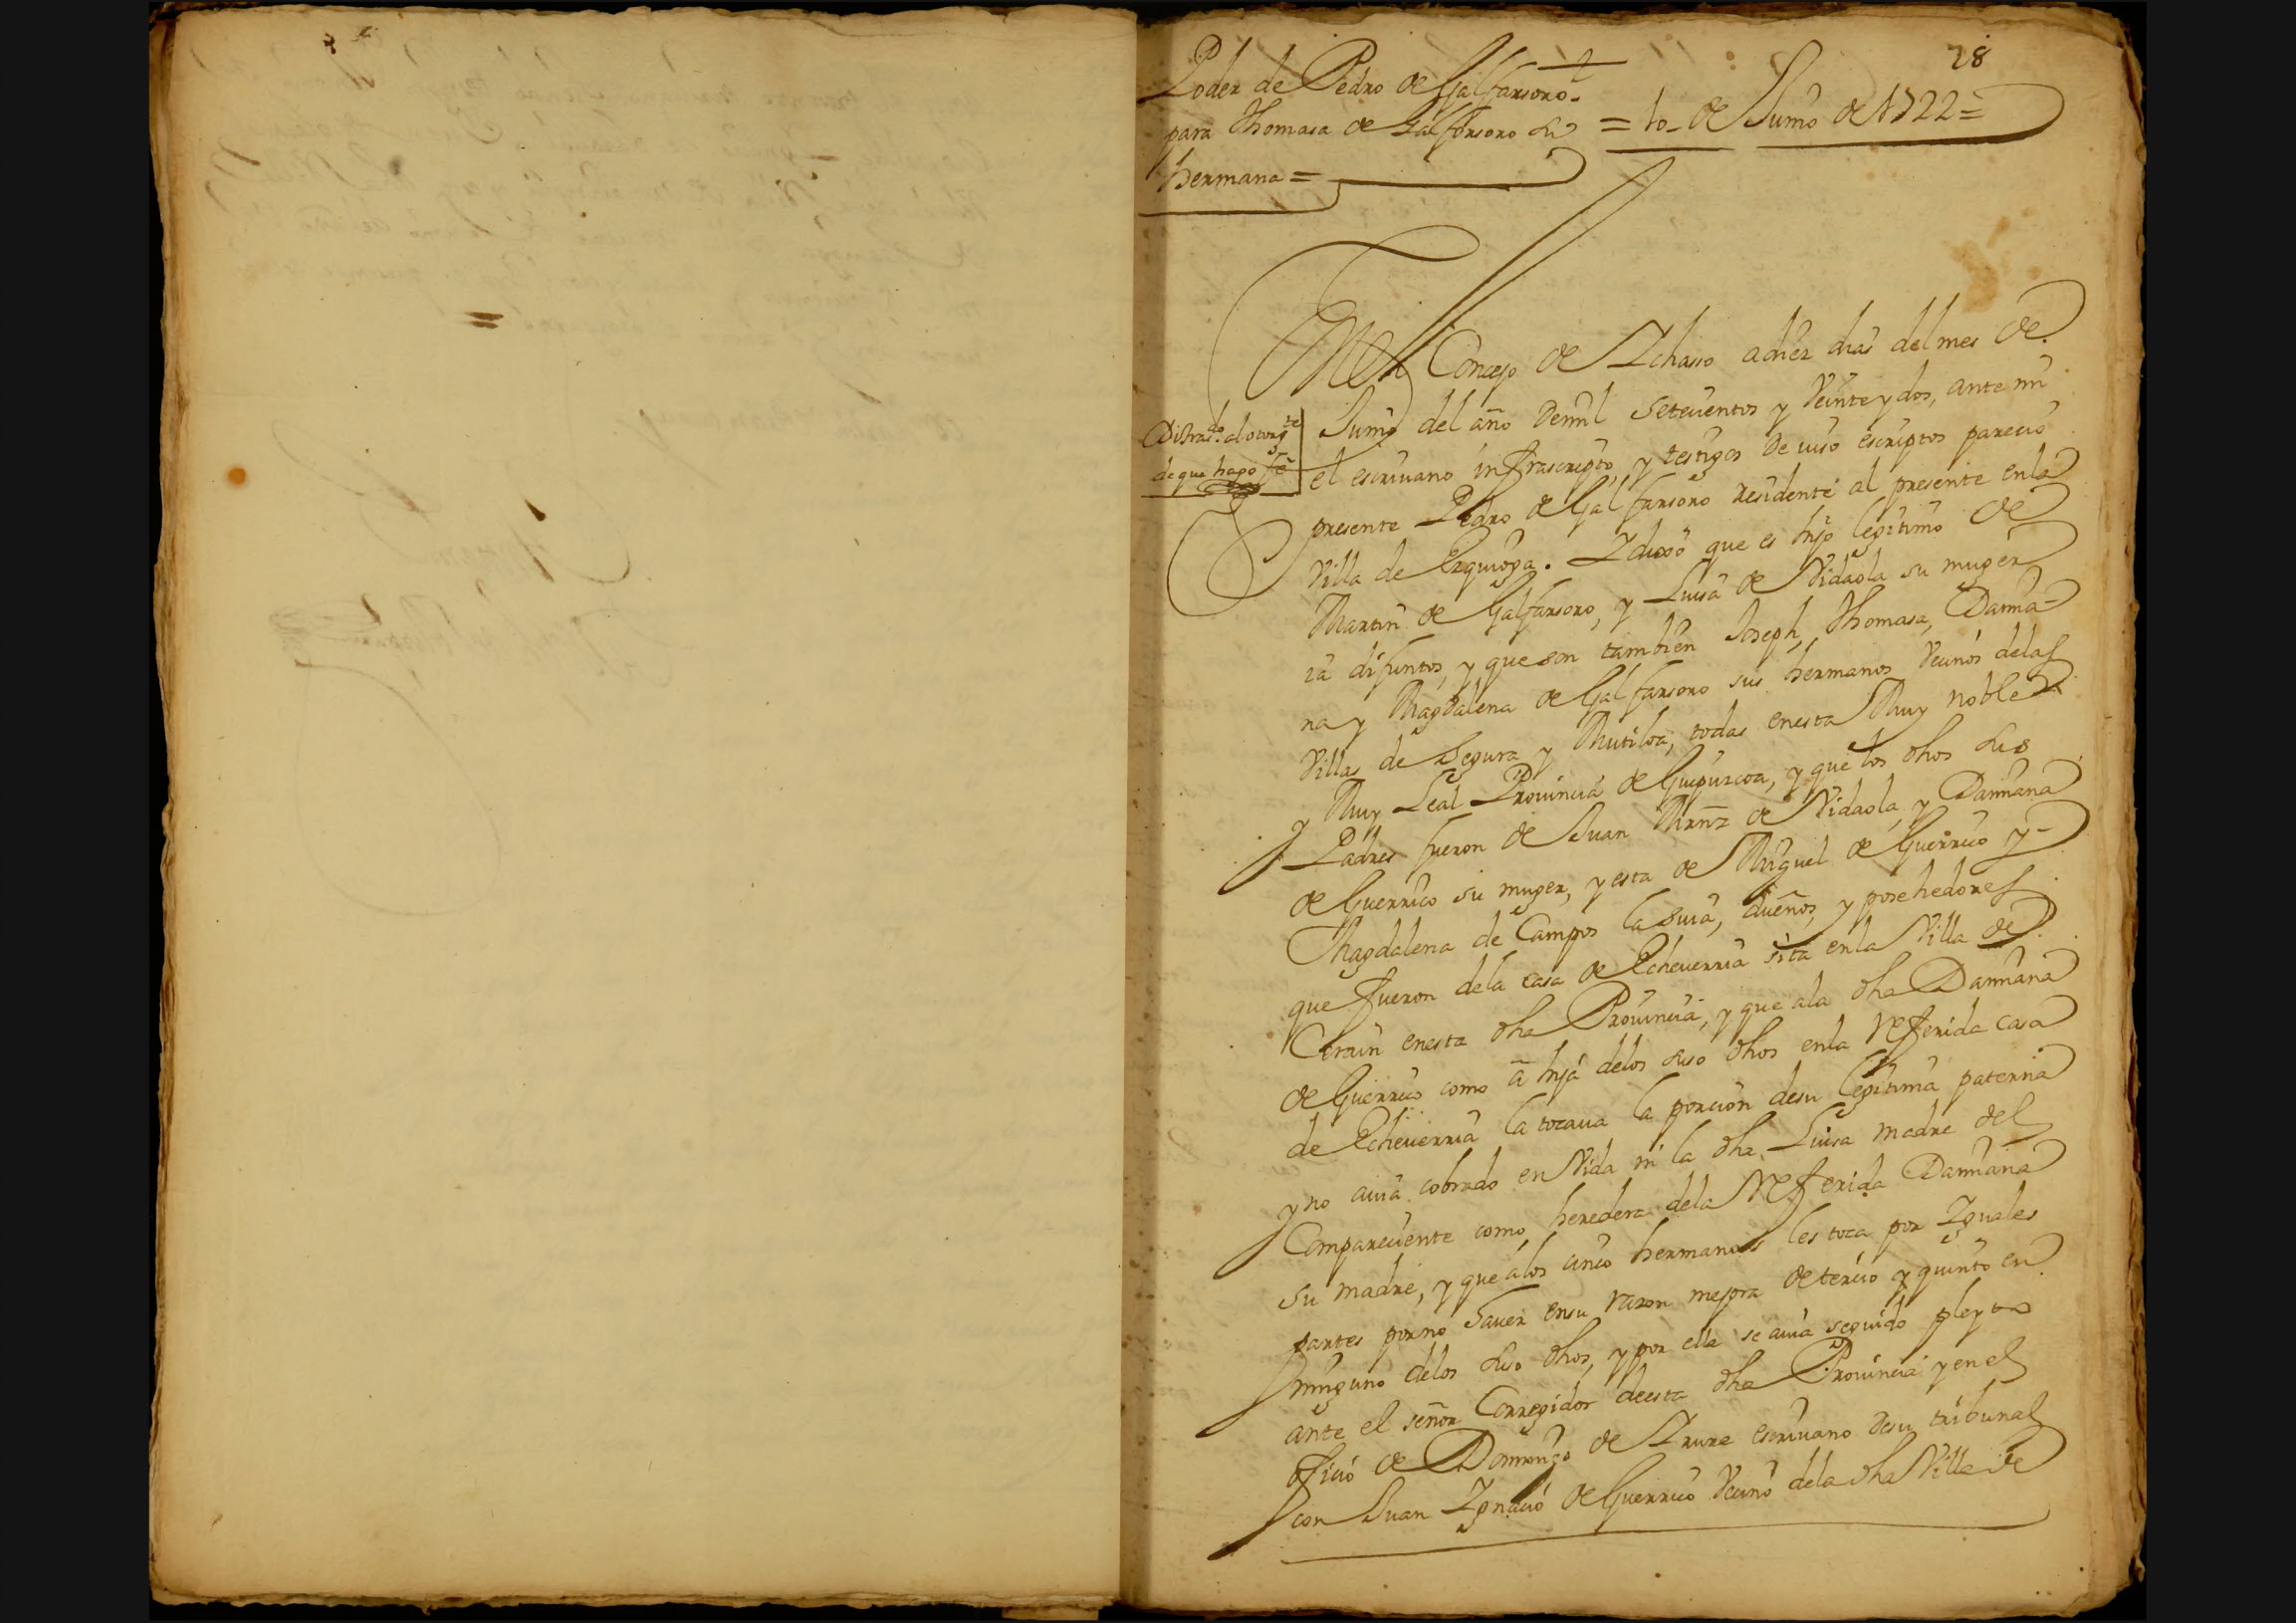 28
Poder de Pedro de Galfarsoro
para Thomasa de Galfarsoro su
hermana =
= 10 - de Junio de 1722 =
En el Concejo de Ichasso a diez dias del mes de
Junio del año de mil setecientos y Veinte y dos, ante mi
el escriuano infrascripto, y testigos de iuso escriptos parecio
presente Pedro de Galfarsoro residente al presente en la
Villa de Ezquioga. I dixo que es hijo legitimo de
Martin de Galfarsoro, y Luisa de Vidaola su muger
ia difuntos, y que son tambien Joseph, Thomasa, Damia-
na y Magdalena de Galfarsoro sus hermanos Vecinos de las
Villas de Segura y Mutiloa, todas en esta Muy noble
y Muy Leal Prouincia de Guipuzcoa, y que los dhos sus
Padres fueron de Juan Mrnz de Vidaola, y Damiana
de Guerrico su muger, y esta de Miguel de Guerrico y
Magdalena de Campos la suia, dueños, y posehedores
que fueron de la casa de Echeuerria sita en la Villa de
Cerain en esta dha Prouincia, y que a la dha Damiana
de Guerrico como a hija de los suso dhos en la refferida casa
de Echeuerria la tocaua la porcion de su legitima paterna
y no auia cobrado en Vida ni la dha Luisa madre del
Compareciente como heredera de la refferida Damiana
su madre, y que a los cinco hermanos les toca por Iguales
partes por no hauer en su razon mejora de tercio y quinto en
ninguno de los suso dhos, y por ella se auia seguido pleyto
ante el señor Corregidor de esta dha Prouincia y en el
officio de Domingo de Irure escriuano de su tribunal
con Juan Ignacio de Guerrico Vecino de la dha Villa de
Di tras.do al otorg.te
de que hago fe